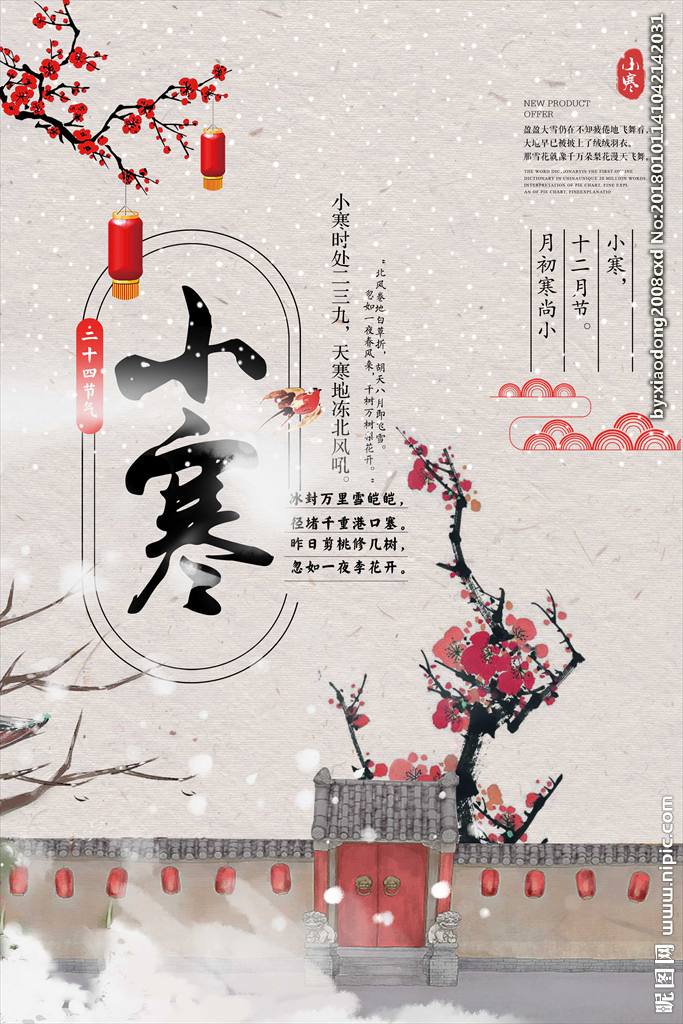 小寒
NEW PRODUCT
OFFER
盈盈大雪仍在不知疲倦地飞舞着,
大地早已被披上了绒绒羽衣。
那雪花就像千万朵梨花漫天飞舞。
THE WORD DICTIONARYIS THE FIRST OF THE
DICTIONARY IN CHINAUNIQUE 20 MILLION WORDS
INTERPRETATION OF PIE CHART, FINE EXPL
AN OF PIE CHART, FINEEXPLANATIO
小寒,
十二月节。
月初寒尚小
小寒时处二三九,天寒地冻北风吼。
"北风卷地白草折,胡天八月即飞雪。
忽如一夜春风来,千树万树梨花开。"
二十四节气
小寒
冰封万里雪皑皑,
径堵千重港口塞。
昨日剪桃修几树,
忽如一夜李花开。
by:xiaodong2008cxd No:20180101141042142031
昵图网 www.nipic.com